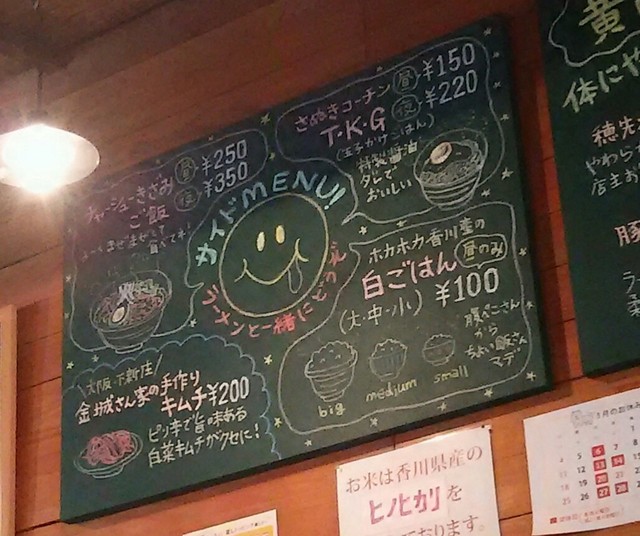 チャーシューきざみ
ご飯
昼 ¥250
夜 ¥350
よーくまぜまぜして
食べてネ!
さぬきコーチン
T・K・G
(玉子かけごはん)
昼 ¥150
夜 ¥220
特製醤油
タレで
おいしい
サイドMENU!
ラーメンと一緒にどうぞ
ホカホカ香川産の
白ごはん 昼のみ
(大・中・小) ¥100
腹ペこさん
から
ちょい飯さん
マデ
big
medium
small
\大阪・下新庄/
金城さん家の手作り
キムチ¥200
ピリ辛で旨味ある
白菜キムチがクセに!
黄
体にや
穂先
やわら
店主お
豚
ラー
菜
お米は香川県産の
ヒノヒカリを
おります。
月のお休み